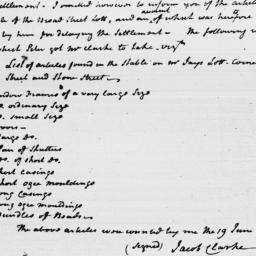 ettlement - I omitted however to inform you of the articles
on the Broad Street Lott, and an account of which was therefore
by him for delaying the Settlement - The following is
which Peter got Mr Clarke to take. viz
List of articles found in the Stable on Mr Jays Lott Corner
Street and Stone Street
ndow Frames of a very large Size
o. ordinary Size
o. small Size
oors -
large do.
Pair of Shutters
do. of short do.
hort casings
hort ogee mouldings
ong Casings
ong ogee mouldings
Bundles of Beads -
The above articles were counted by me the 19 June
(Signed) Jacob Clarke